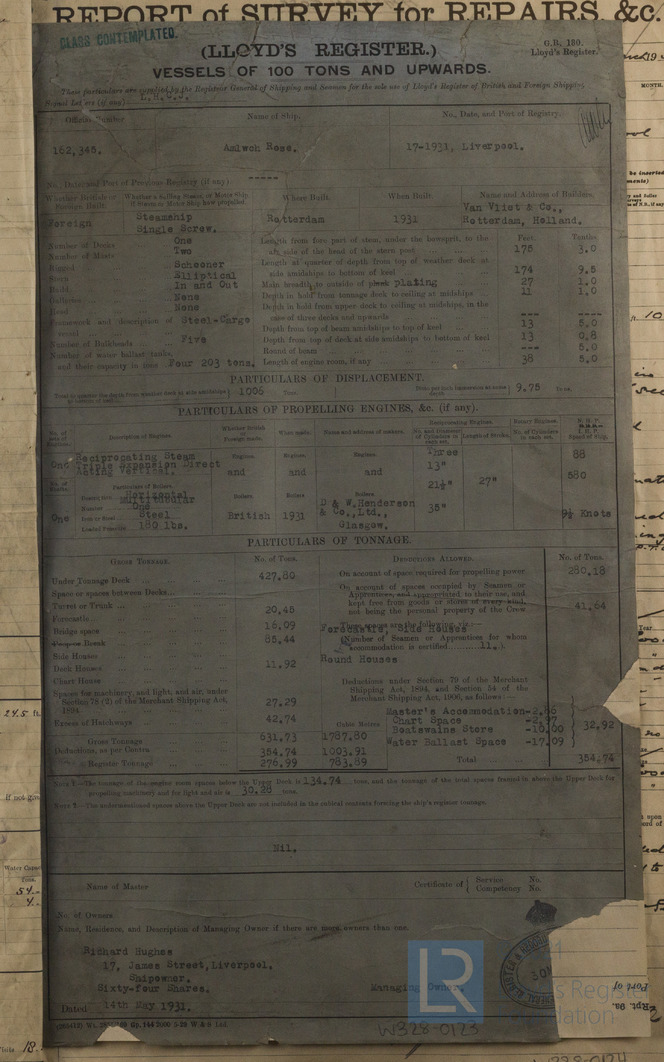 REPORT of SURVEY for REPAIRS, &c.
CLASS CONTEMPLATED.
(LLOYD'S REGISTER.)
G.B. 130.
Lloyd's Register.
VESSELS OF 100 TONS AND UPWARDS.
These particulars are supplied by the Registrar General of Shipping and Seamen for the sole use of Lloyd's Register of British and Foreign Shipping
Signal Letters (if any)
Official Number
Name of Ship.
No., Date, and Port of Registry.
162,345.
Amlwch Rose.
17-1931, Liverpool.
No., Date and Port of Previous Registry (if any) -----
Whether British or Foreign Built.
Whether a Sailing, Steam or Motor Ship if Steam or Motor Ship how propelled
Where Built.
When Built.
Name and Address of Builders.
Foreign
Steamship
Single Screw.
Rotterdam
1931
Van Vliet & Co.,
Rotterdam, Holland.
Number of Decks One
Number of Masts Two
Rigged Schooner
Stern Elliptical
Build In and Out
Galleries None
Head None
Framework and description of vessel Steel-Cargo
Number of Bulkheads Five
Number of water ballast tanks, and their capacity in tons Four 203 tons.
Feet. Tenths
Length from fore part of stem, under the bowsprit, to the aft side of the head of the stern post 175 3.0
Length at quarter of depth from top of weather deck at side amidships to bottom of keel 174 9.5
Main breadth to outside of plank plating 27 1.0
Depth in hold from tonnage deck to ceiling at midships 11 1.0
Depth in hold from upper deck to ceiling at midships, in the case of three decks and upwards --- ---
Depth from top of beam amidships to top of keel 13 5.0
Depth from top of deck at side amidships to bottom of keel 13 0.8
Round of beam --- 5.0
Length of engine room, if any 38 5.0
PARTICULARS OF DISPLACEMENT.
1006 Tons.
9.75 Tons.
PARTICULARS OF PROPELLING ENGINES, &c. (if any).
No. of sets of Engines.
Description of Engines
Whether British or Foreign made.
When made.
Name and address of makers.
Reciprocating Engines.
No. and Diameter of Cylinders in each set.
Length of Stroke.
Rotary Engines.
No. of Cylinders in each set.
N.H.P.
I.H.P.
Speed of Ship.
One
Reciprocating Steam
Triple Expansion Direct
Acting Vertical.
Engines.
and
Engines.
and
Engines.
and
Three
13"
21½"
35"
27"
88
580
9½ Knots
Particulars of Boilers
Description Horizontal
Multitubular
Number One
Iron or Steel Steel
Loaded Pressure 180 lbs.
One
Boilers
British
Boilers
1931
Boilers
D & W.Henderson
& Co.,Ltd.,
Glasgow.
PARTICULARS OF TONNAGE.
Gross Tonnage.
No. of Tons.
Deductions Allowed.
No. of Tons.
Under Tonnage Deck 427.80
Space or spaces between Decks
Turret or Trunk
Forecastle 20.45
Bridge space 16.09
Break 85.44
Side Houses
Deck Houses 11.92
Chart House
Spaces for machinery, and light, and air, under Section 78 (2) of the Merchant Shipping Act, 1894. 27.29
Excess of Hatchways 42.74
Cubic Metres
Gross Tonnage 631.73 1787.80
Deductions, as per Contra 354.74 1003.91
Register Tonnage 276.99 783.89
On account of space required for propelling power 280.18
On account of spaces occupied by Seamen or Apprentices, and appropriated to their use, and kept free from goods or stores of every kind, not being the personal property of the Crew 41.64
These spaces are the following, viz.:—
Forecastle, Side Houses
(Number of Seamen or Apprentices for whom accommodation is certified 11.)
Round Houses
Deductions under Section 79 of the Merchant Shipping Act, 1894, and Section 54 of the Merchant Shipping Act, 1906, as follows:—
Master's Accommodation-2.86
Chart Space -2.97
Boatswains Store -10.00
Water Ballast Space -17.09
32.92
Total 354.74
Note 1.—The tonnage of the engine room spaces below the Upper Deck is 134.74 tons, and the tonnage of the total spaces framed in above the Upper Deck for propelling machinery and for light and air is 30.28 tons.
Note 2.—The undermentioned spaces above the Upper Deck are not included in the cubical contents forming the ship's register tonnage.
Nil,
Name of Master
Certificate of
Service No.
Competency No.
No. of Owners
Name, Residence, and Description of Managing Owner if there are more owners than one.
Richard Hughes
17, James Street,Liverpool.
Shipowner.
Sixty-four Shares.
Managing Owner.
Dated 14th May 1931.
W328-0123
LR
Foundation